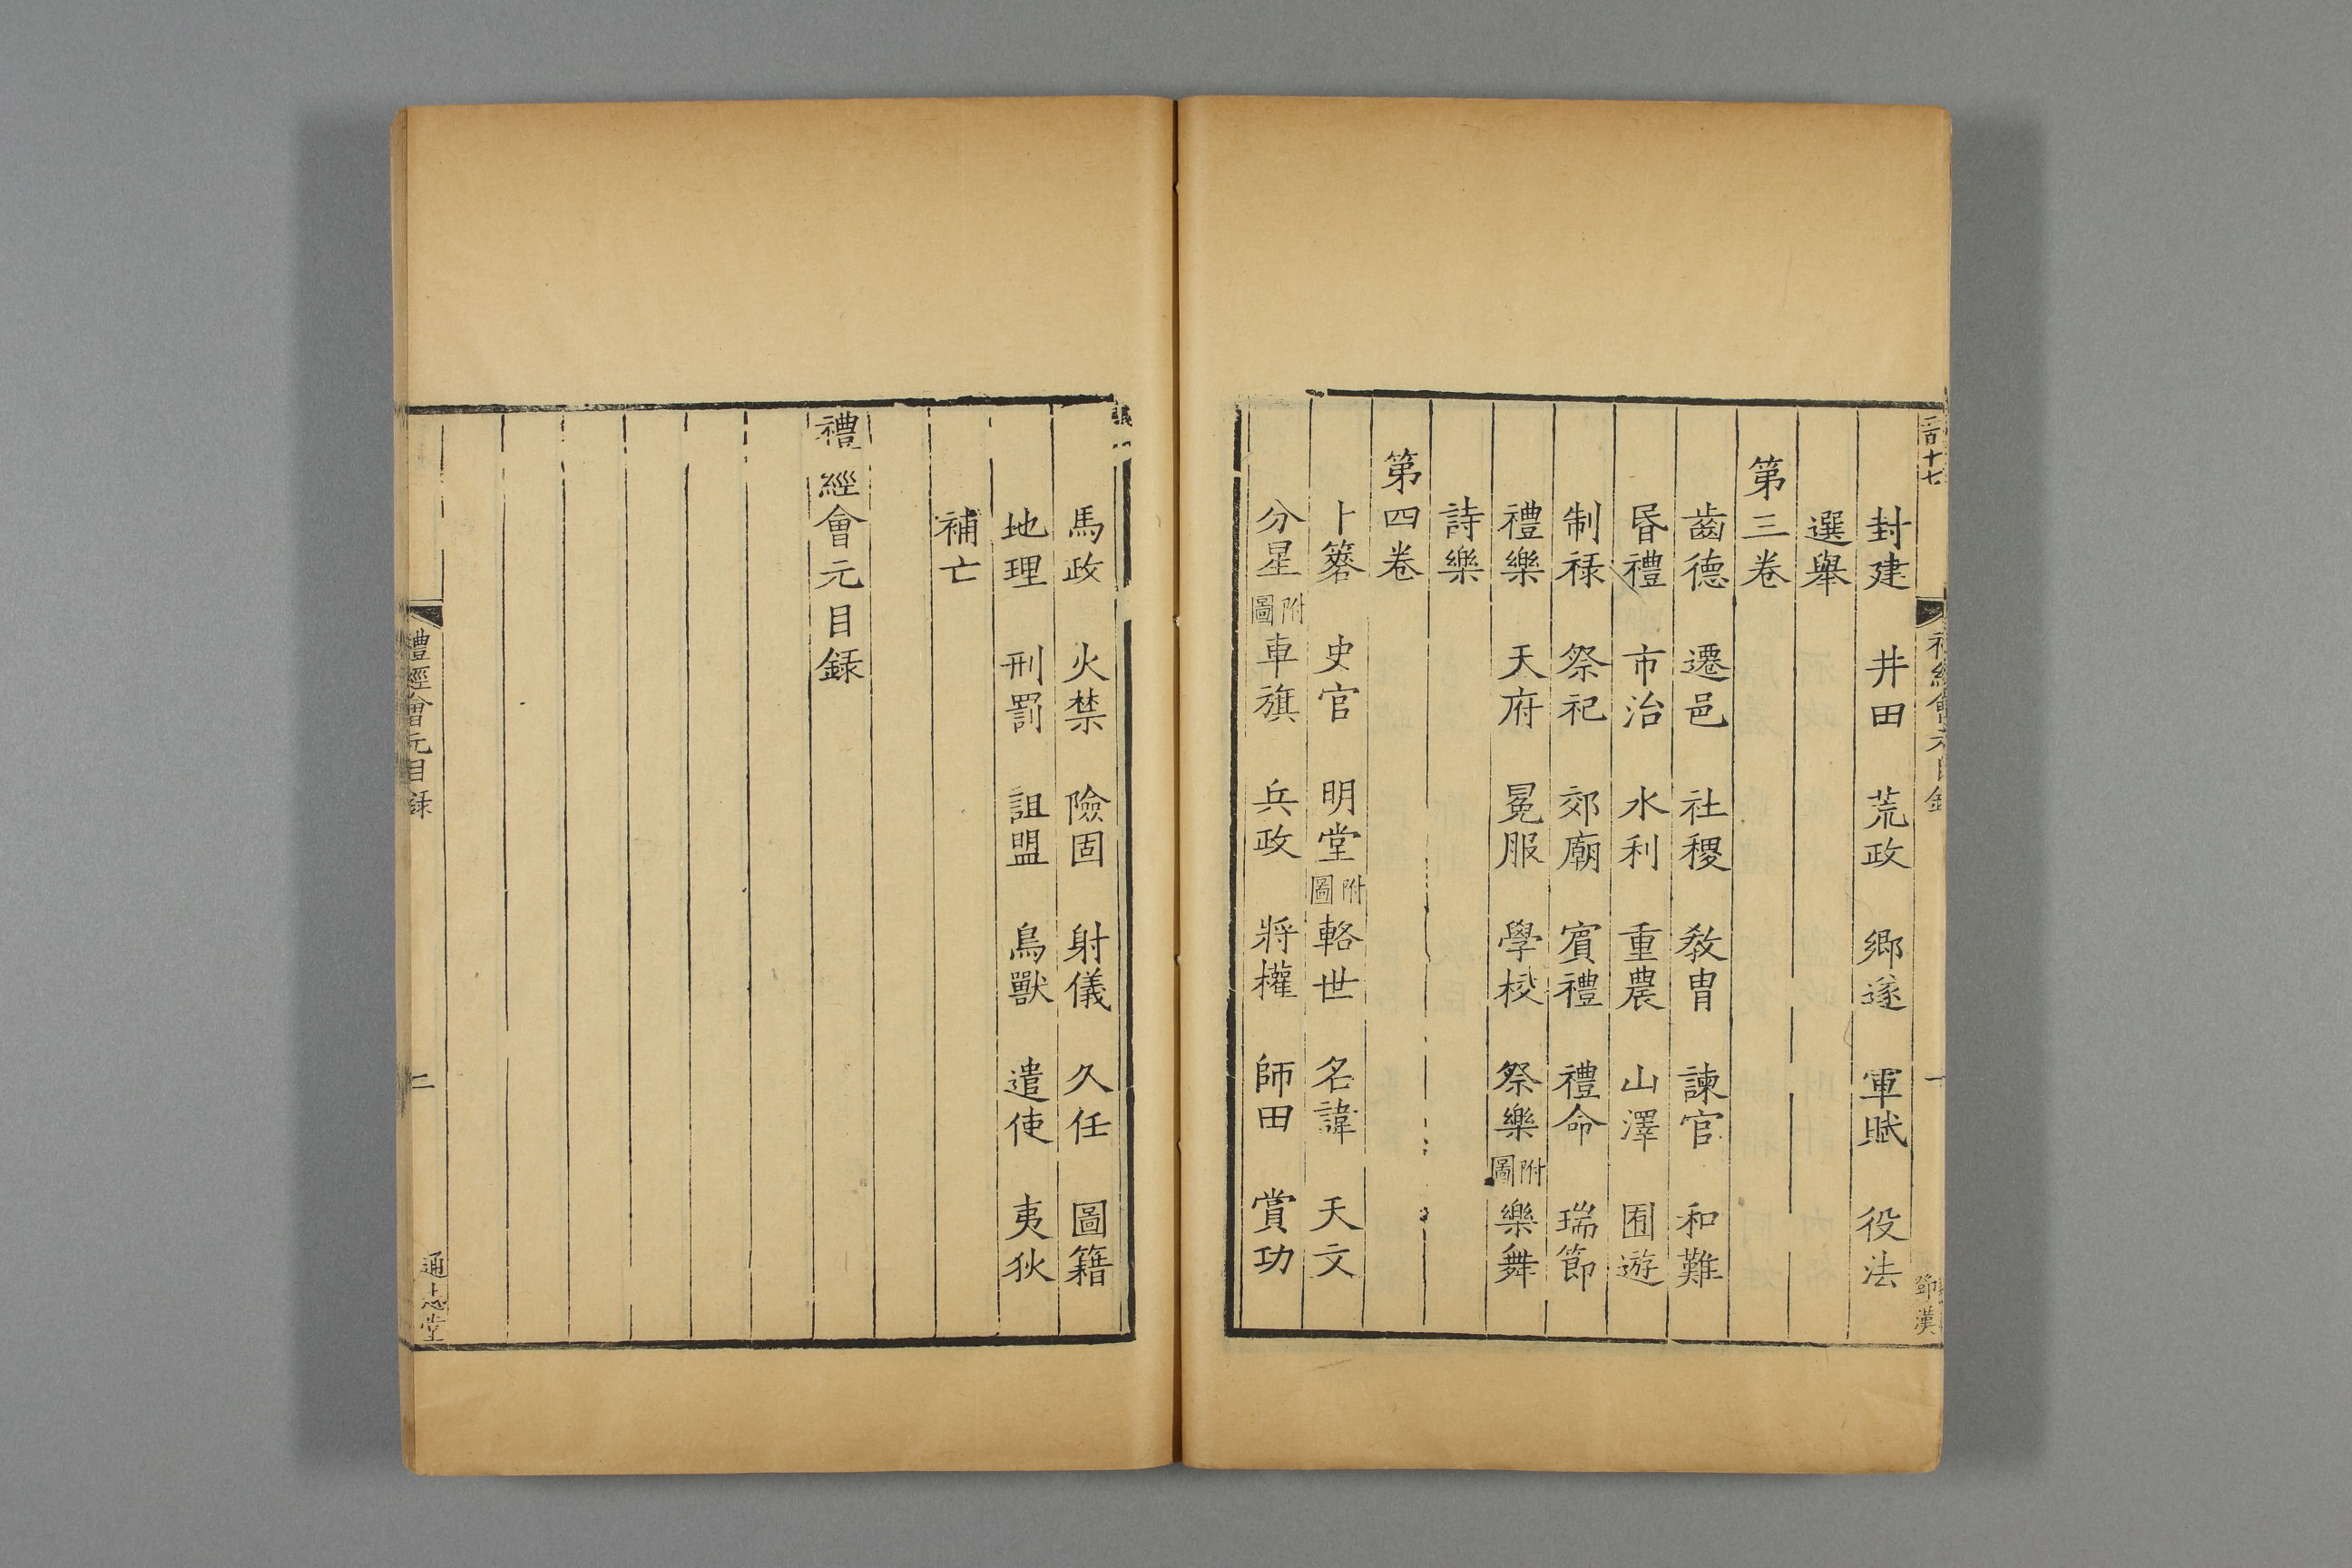 封建 井田 荒政 鄉遂 軍賦 役法
選舉
第三卷
齒德 遷邑 社稷 敎胄 諫官 和難
昏禮 市治 水利 重農 山澤 囿遊
制祿 祭祀 郊廟 賓禮 禮命 瑞節
禮樂 天府 冕服 學校 祭樂附圖 樂舞
詩樂
第四卷
卜簭 史官 明堂附圖 輅世 名諱 天文
分星附圖 車旗 兵政 將權 師田 賞功
馬政 火禁 險固 射儀 久任 圖籍
地理 刑罰 詛盟 鳥獸 遣使 夷狄
補亡
禮經會元目録
禮經會元目録 二 通志堂